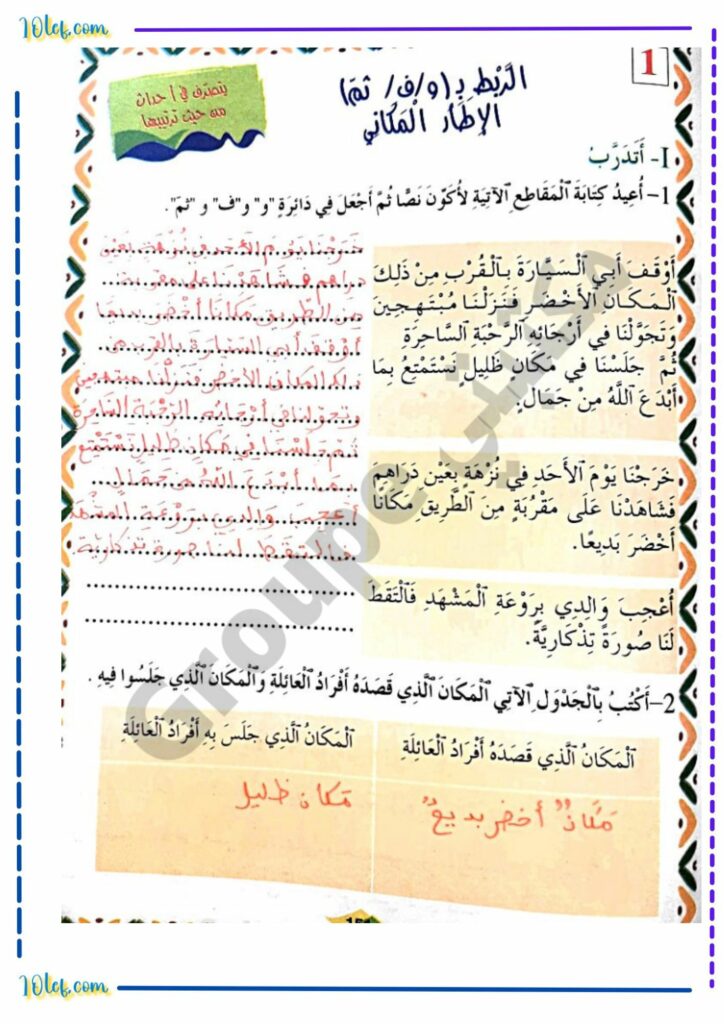 10lef.com
1
الرَّبْط بِـ (و/ف/ ثمّ)
الإِطار المَكاني
يتصرّف في أحداث
من حيث ترتيبها
I- أَتَدَرَّبُ
1- أُعِيدُ كِتَابَةَ ٱلْمَقَاطِعِ ٱلْآتِيَةِ لأُكَوِّنَ نَصًّا ثُمَّ أَجْعَلَ فِي دَائِرَةٍ "و" و "ف" و "ثمّ".
أَوْقَفَ أَبِي ٱلسَّيَّارَةَ بِٱلْقُرْبِ مِنْ ذَلِكَ
ٱلْمَكَانِ ٱلأَخْضَرِ فَنَزَلْنَا مُبْتَهِجِينَ
وَتَجَوَّلْنَا فِي أَرْجَائِهِ ٱلرَّحْبَةِ ٱلسَّاحِرَةِ
ثُمَّ جَلَسْنَا فِي مَكَانٍ ظَلِيلٍ نَسْتَمْتِعُ بِمَا
أَبْدَعَ ٱللَّهُ مِنْ جَمَالٍ.
خَرَجْنَا يَوْمَ ٱلأَحَدِ فِي نُزْهَةٍ بِعَيْن دَرَاهِم
فَشَاهَدْنَا عَلَى مَقْرُبَةٍ مِنَ ٱلطَّرِيقِ مَكَانًا
أَخْضَرَ بَدِيعًا.
أُعْجِبَ وَالِدِي بِرَوْعَةِ ٱلْمَشْهَدِ فَٱلْتَقَطَ
لَنَا صُورَةً تِذْكَارِيَّةً.
خرجنا يوم الأحد في نزهة بعين
دراهم فشاهدنا على مقربة
من الطريق مكانا أخضر بديعا
أوقف أبي السيارة بالقرب من
ذلك المكان الأخضر فنزلنا مبتهجين
وتجولنا في أرجائه الرحبة الساحرة
ثم جلسنا في مكان ظليل نستمتع
بما أبدع الله من جمال.
أعجب والدي بروعة المشهد
فالتقط لنا صورة تذكارية
2- أَكْتُبُ بِٱلْجَدْوَلِ ٱلآتِي ٱلْمَكَانَ ٱلَّذِي قَصَدَهُ أَفْرَادُ ٱلْعَائِلَةِ وَٱلْمَكَانَ ٱلَّذِي جَلَسُوا فِيهِ.
ٱلْمَكَانُ ٱلَّذِي قَصَدَهُ أَفْرَادُ ٱلْعَائِلَةِ
ٱلْمَكَانُ ٱلَّذِي جَلَسَ بِهِ أَفْرَادُ ٱلْعَائِلَةِ
مكانٌ أخضر بديعٌ
مكان ظليل
Groupe مكتبتي
10lef.com